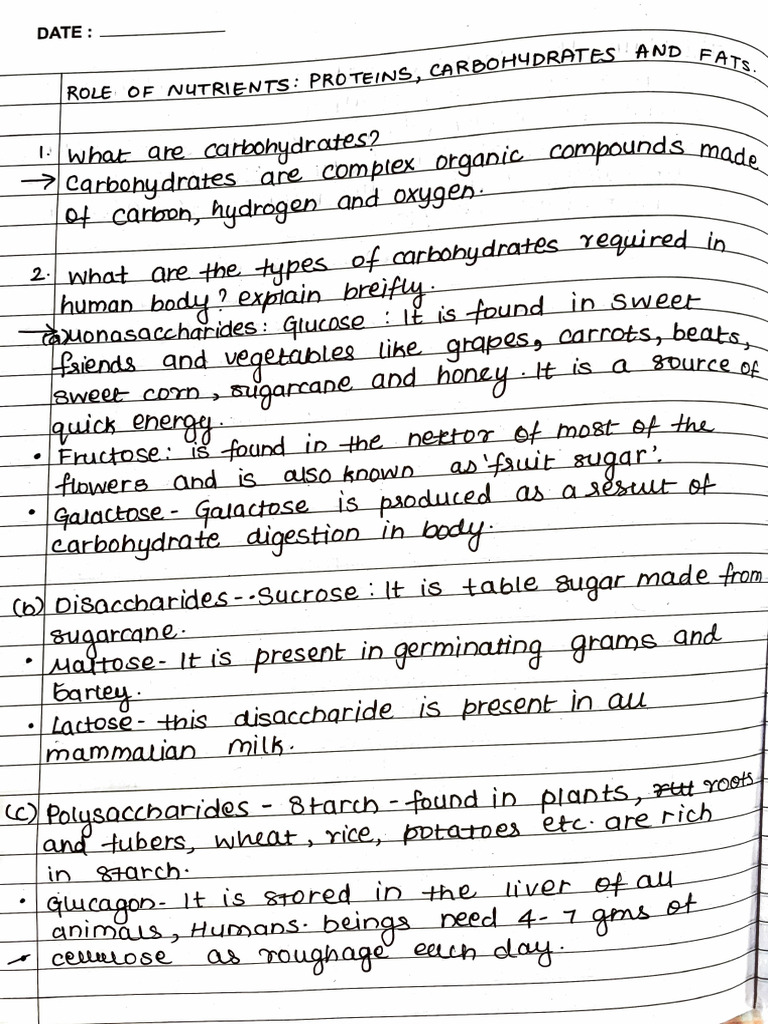 DATE :
ROLE OF NUTRIENTS: PROTEINS, CARBOHYDRATES AND FATS.
1. What are carbohydrates?
→ Carbohydrates are complex organic compounds made
of carbon, hydrogen and oxygen.
2. What are the types of carbohydrates required in
human body? explain breifly.
→ (a) Monasaccharides: Glucose : It is found in sweet
friends and vegetables like grapes, carrots, beats,
sweet corn, sugarcane and honey. It is a source of
quick energy.
• Fructose: is found in the nektor of most of the
flowers and is also known as 'fruit sugar'.
• Galactose - Galactose is produced as a result of
carbohydrate digestion in body.
(b) Disaccharides - • Sucrose : It is table sugar made from
sugarcane.
• Maltose - It is present in germinating grams and
barley.
• Lactose - this disaccharide is present in all
mammalian milk.
(c) Polysaccharides - Starch - found in plants, roots
and tubers, wheat, rice, potatoes etc. are rich
in starch.
• Glucagon - It is stored in the liver of all
animals, Humans. beings need 4-7 gms of
cellulose as roughage each day.